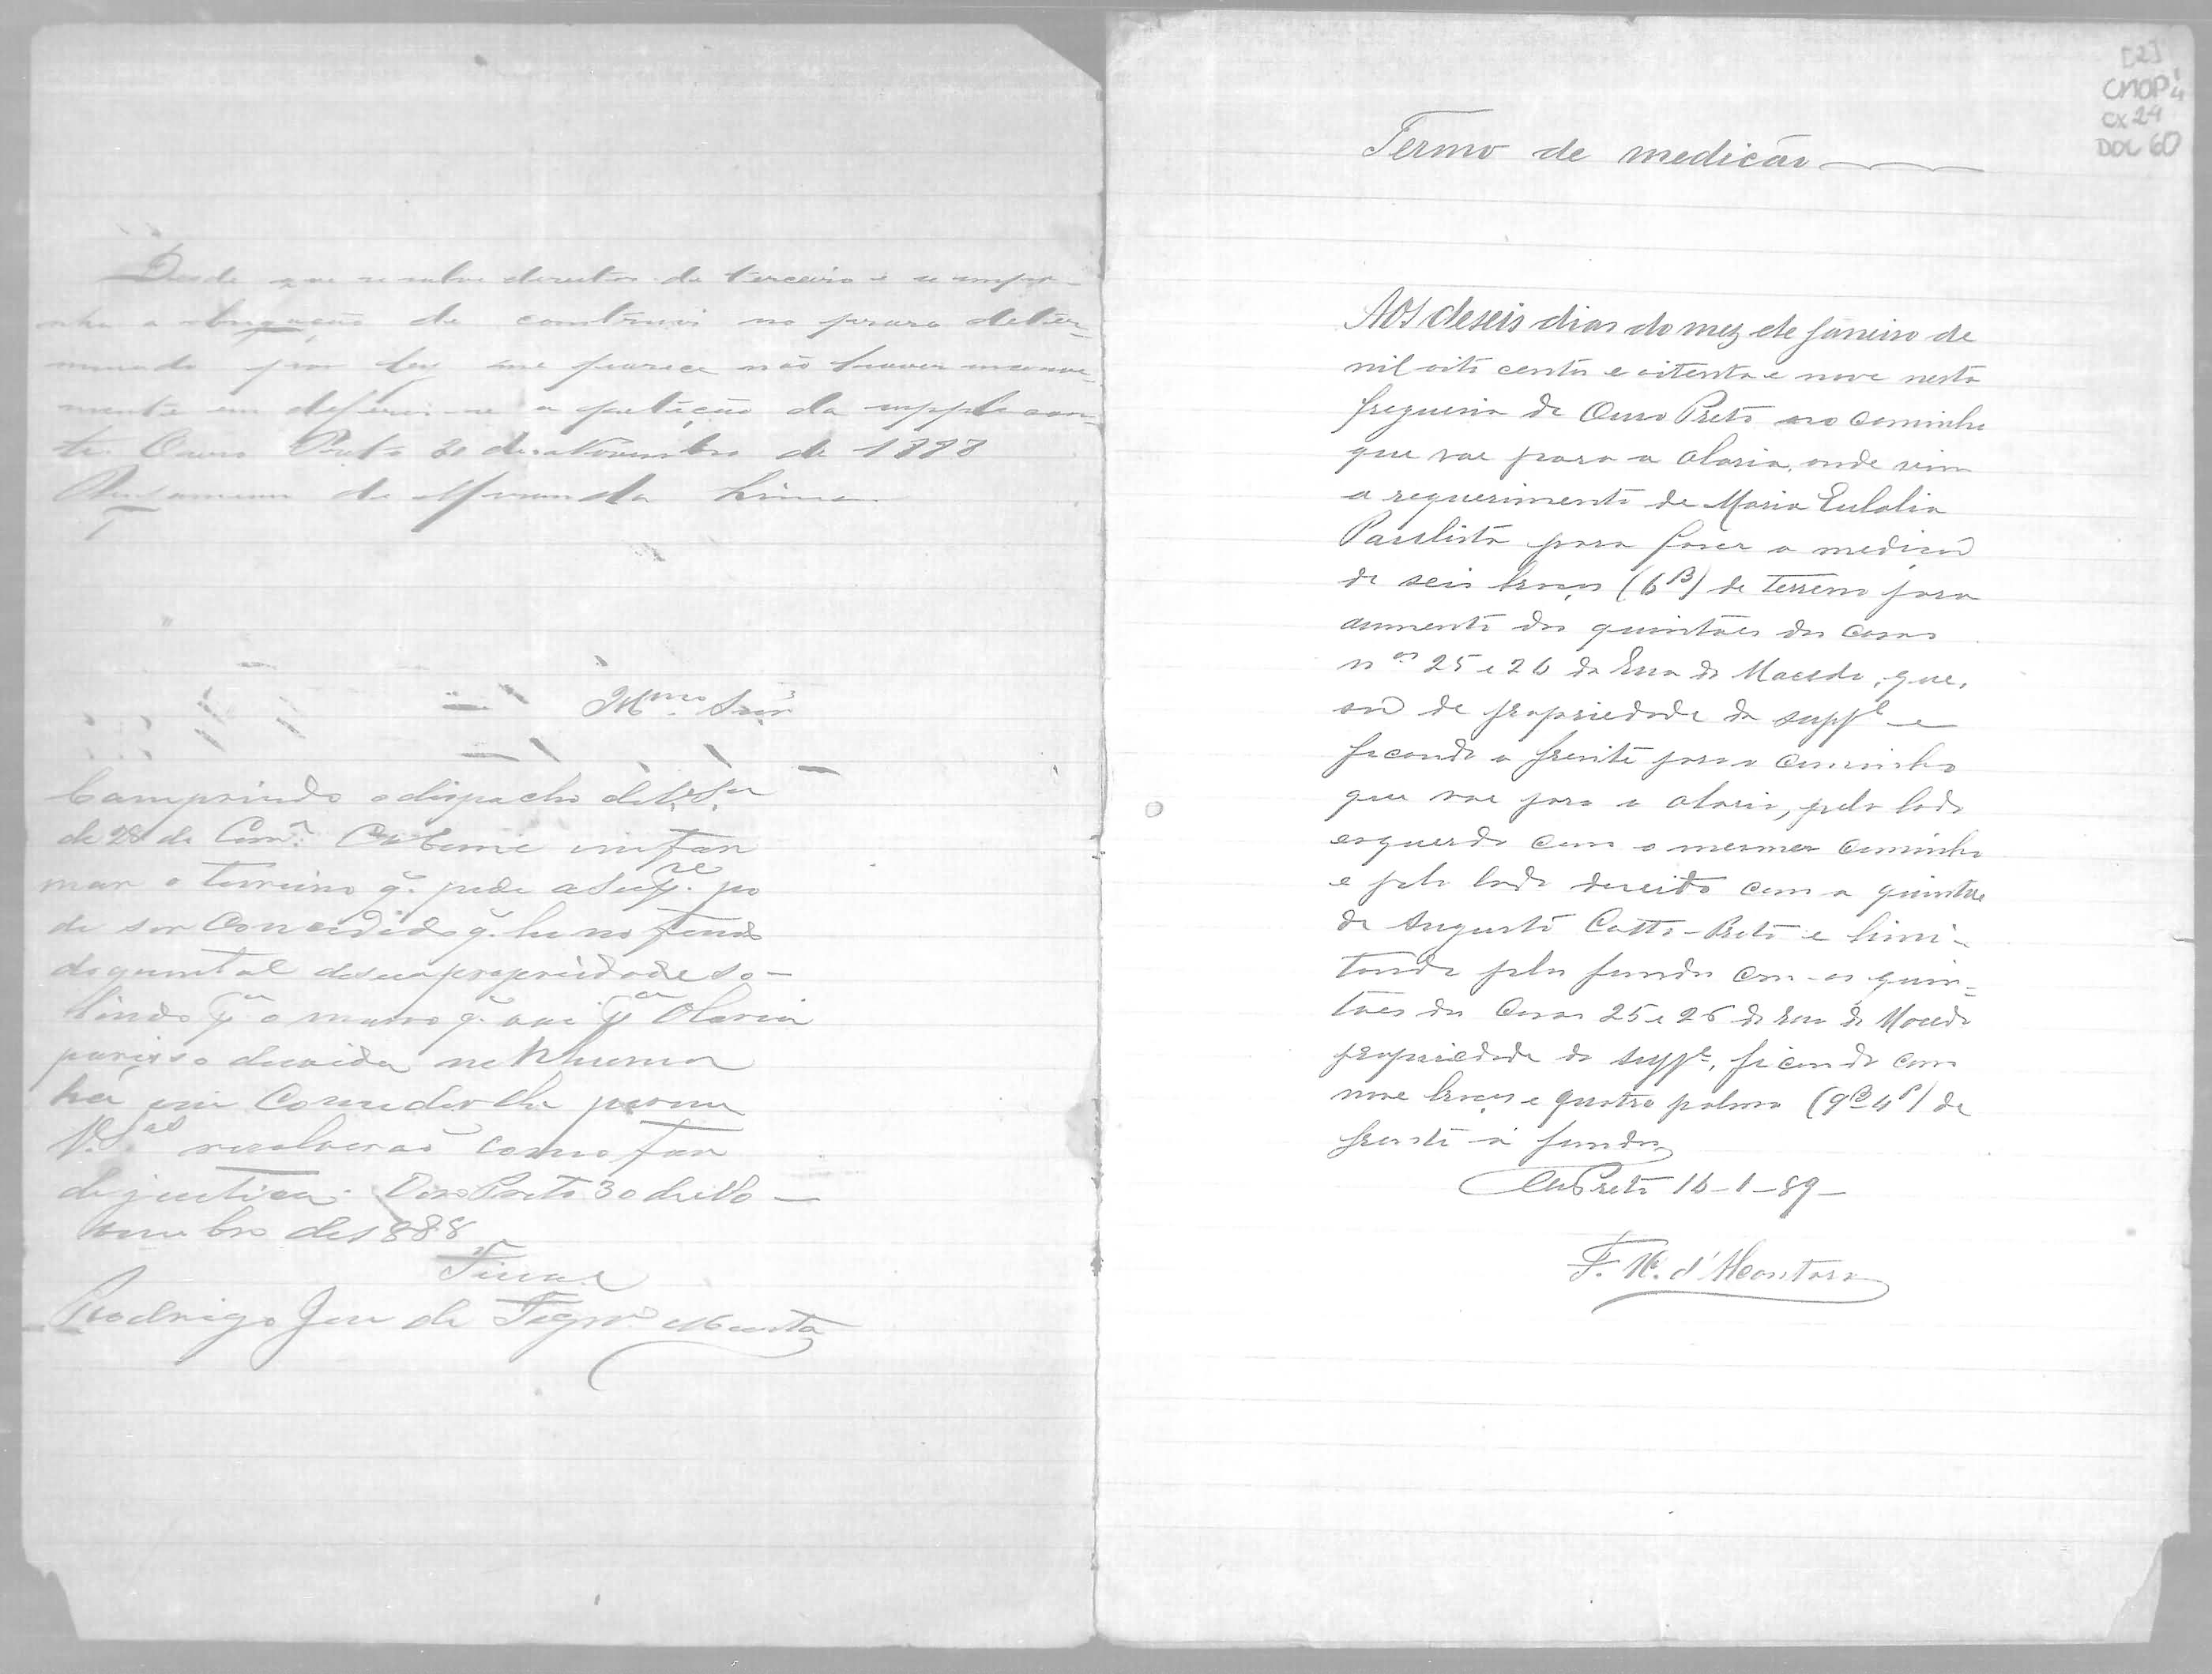 Desde que se salve direitos de terceiro e se impo-
nha a obrigação de construir no praso deter-
minado por lei me parece não haver inconve-
niente em deferir-se a petição da supplican-
te. Ouro Preto 30 de Novembro de 1888
de Miranda Lima
Illmo Snr
Comprindo o dispacho de V.Sa
de 28 do Corre. Cabeme infor
mar o terreino q. pede a Supe. po
de ser Concedido q. he no fundo
do quintal desua propriedade so-
hindo pa o murro q. vai pa Olaria
parisso duvida nehhuma
há em Concederlhe porem
V.Sas resolverão como for
dejustiça. Ouro Preto 30 de No-
vembro de 1888
O Fiscal
Rodrigo José de Figrdo Murta
[2]
CMOP
CX 24
DOC 60
Termo de medicão
Aos deseis dias do mez de Janeiro de
mil oito centos e oitenta e nove nesta
freguesia de Ouro Preto no caminho
que vae para a olaria, onde vim
a requerimento de Maria Eulalia
Paulista para fazer a medição
de seis braças (6B) de terreno para
aumento dos quintães das casas
nos 25 e 26 da Rua do Macedo, que,
são de propriedade da suppe e
ficando a frente para o caminho
que vae para a olaria, pelo lado
esquerdo com o mesmo caminho
e pelo lado direito com o quintal
de Augusto Catta-Preta e limi-
tando pelos fundos com os quin-
tães das Casas 25 e 26 da Rua do Macedo
propriedade da suppe, ficando com
nove braças e quatro palmos (9B 4P) de
frente á fundos
Ou Preto 16-1-89-
F. M. d'Alcantara